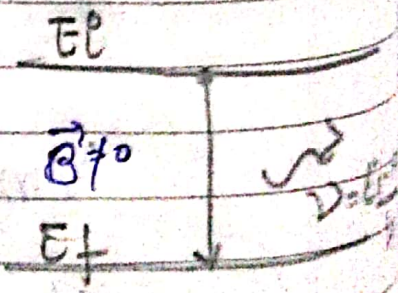 Eℓ
B⃗≠0
Ef